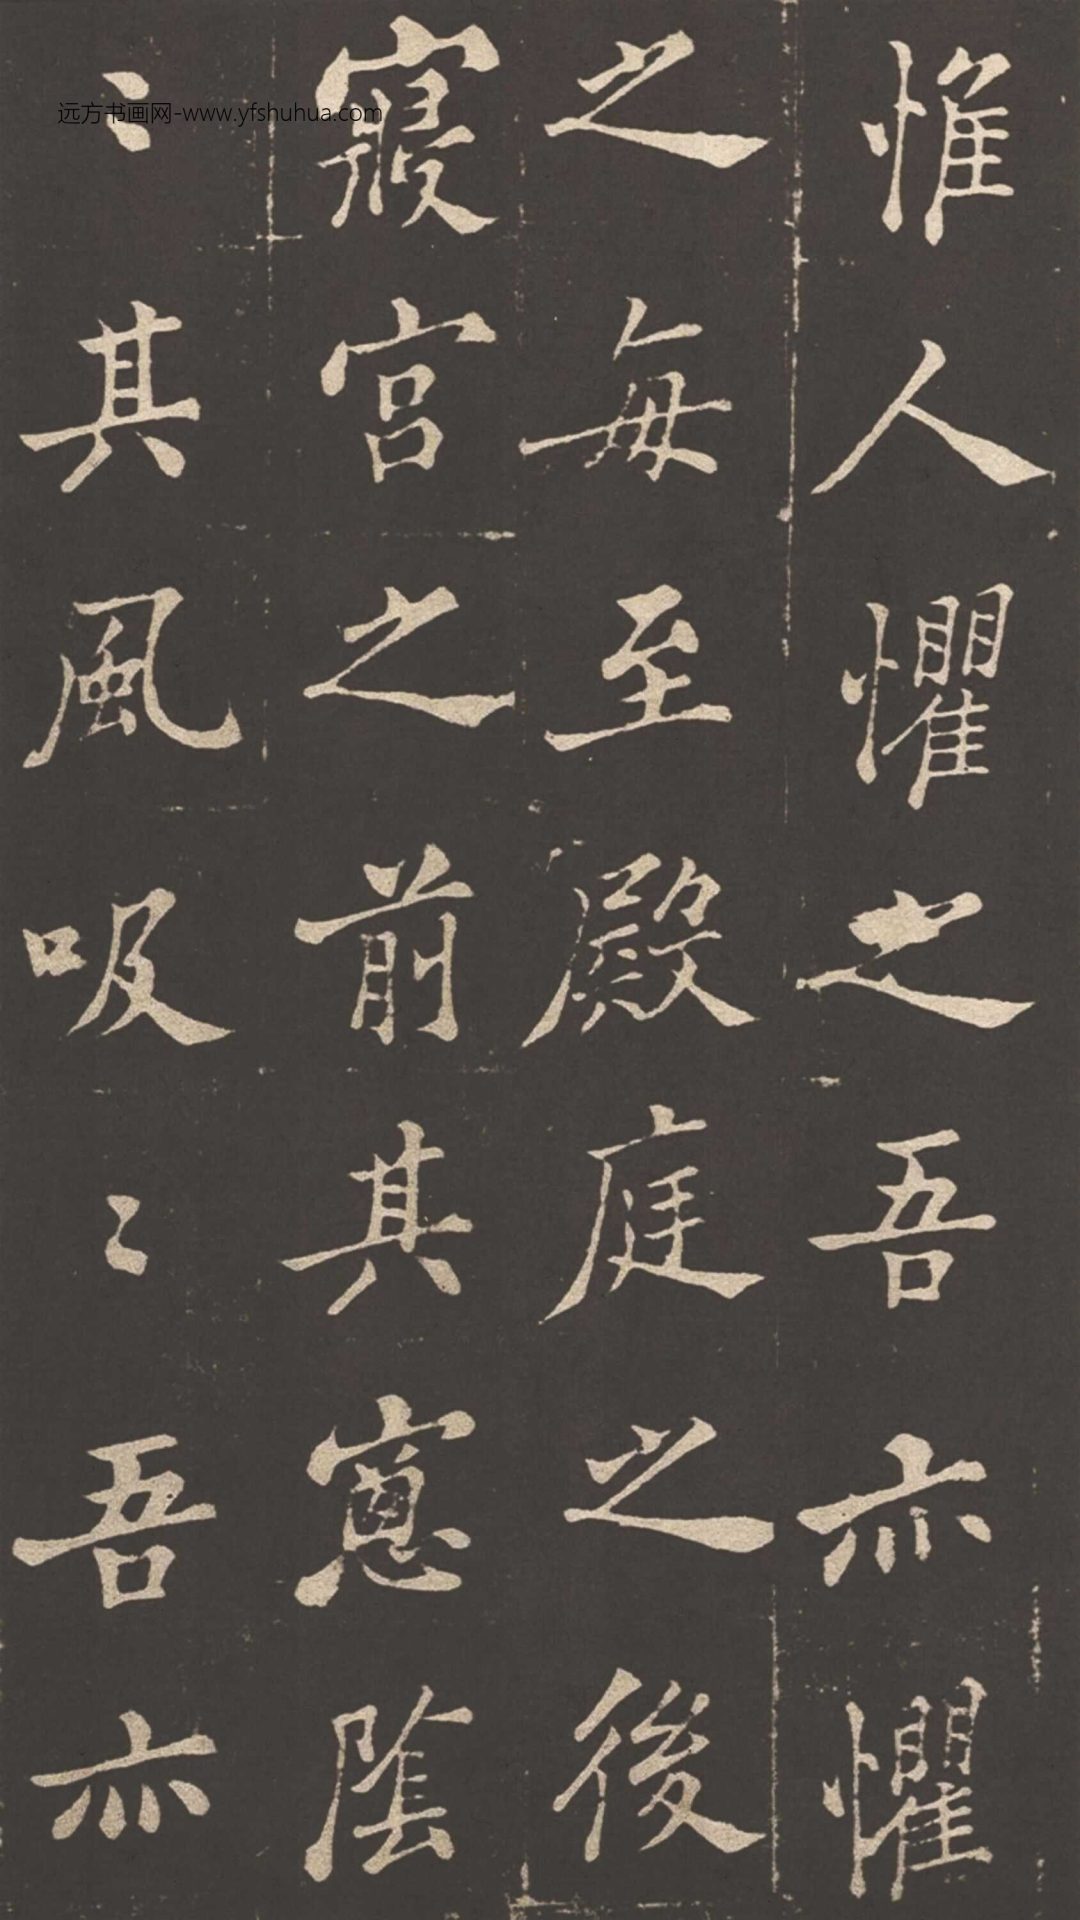 惟人懼之吾亦懼
之每至殿庭之後
寢宮之前其窻陰
〻其風吸〻吾亦
远方书画网-www.yfshuhua.com